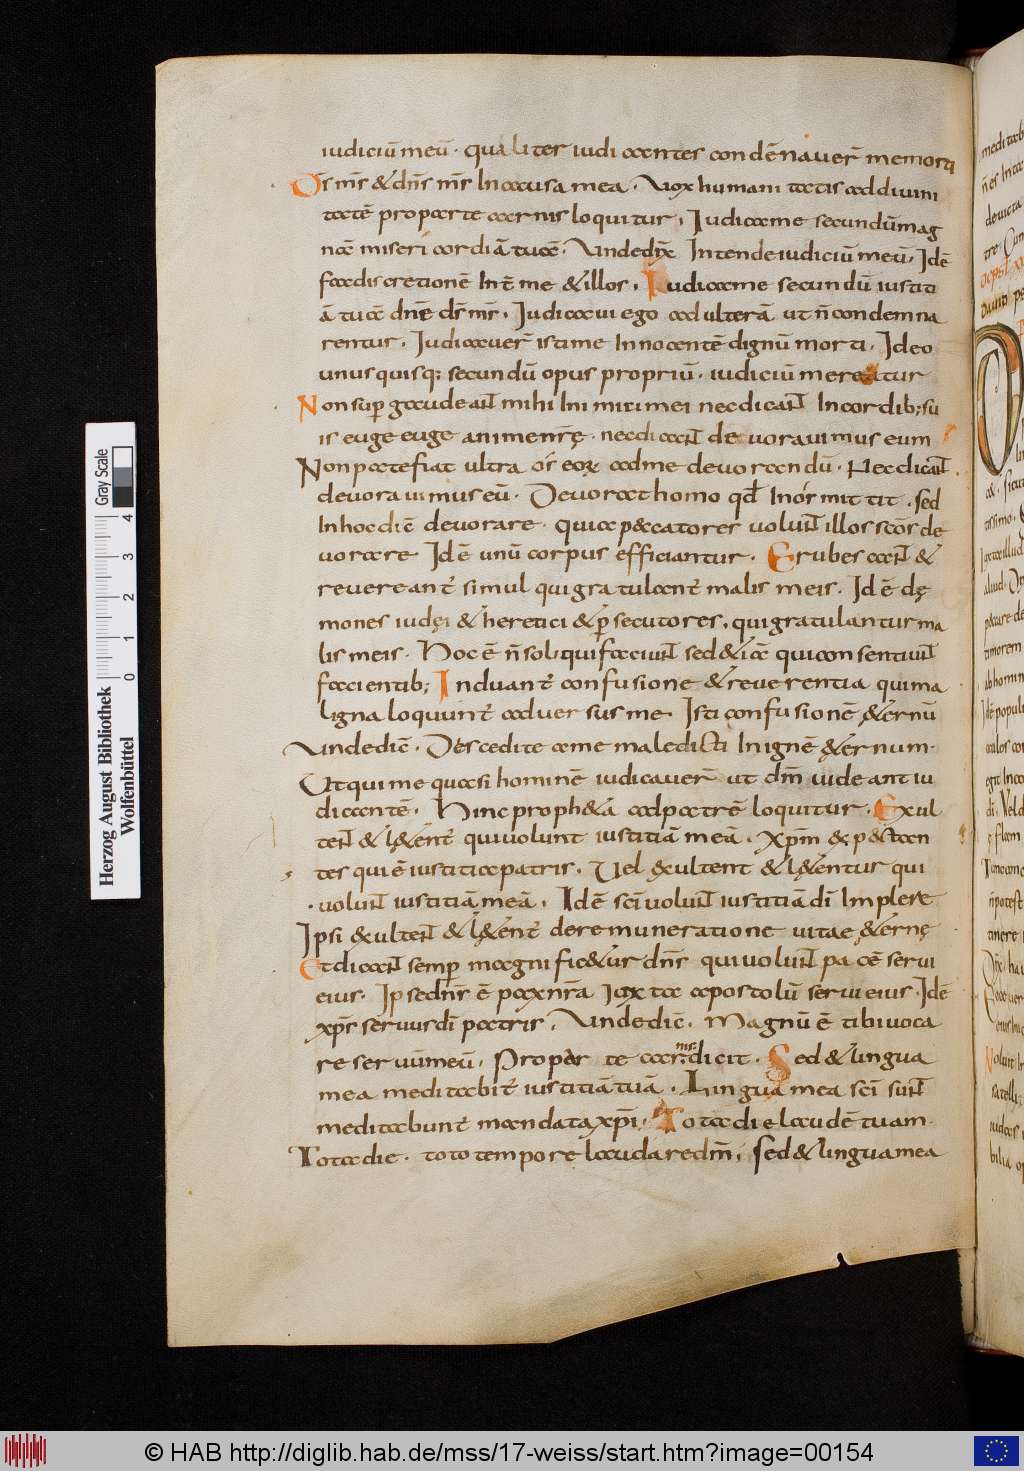 iudiciū meū · qualiter iudicantes condēnauer̄ me morti
Ds̄ ms̄ & dn̄s ms̄ In causa mea · Vox humanitatis ad diuini
tatē pro parte carnis loquitur · Iudica me secundū mag
nā misericordiā tuā · Vnde dix̄ Intende iudiciū meū · Id ē
fac discretionē Int̄ me & illos · Iudica me secundū iustiti
ā tuā dn̄e ds̄ ms̄ · Iudicaui ego adulterā ut n̄ condemna
rentur · Iudicauer̄ isti me Innocentē dignū morti · Ideo
unusquisq; secundū opus propriū · iudiciū mereatur
Non sup̄ gaudeant mihi Inimici mei nec dicant In cordib; su
is euge euge anime nr̄ę · nec dicant deuorauimus eum
Non patefiat ultra os eoꝝ ad me deuorandū · Nec dicant
deuorauimus eū · Deuorat homo qd̄ In os mittit · sed
In hoc diē deuorare · quia peccatores uolunt illos scōs de
uorare Id ē unū corpus efficiantur · Erubescant &
reuereant̄ simul qui gratulant̄ malis meis · Id ē dę
mones iudęi & heretici & p̄secutores · qui gratulantur ma
lis meis · Hoc ē n̄ soli qui faciunt sed & iā qui consentiunt
facientib; Induant̄ confusione & reuerentia qui ma
ligna loquunt̄ aduersus me · Isti confusionē &ernū
Vnde dic̄ · Discedite a me maledicti In ignē &ernum ·
Vt qui me quasi hominē iudicauer̄ ut dm̄ uideant iu
dicantē · Hinc proph&a ad patrē loquitur · Exul
tent & l&ent̄ qui uolunt iustitiā meā · xp̄m exp&tan
tes qui ē iustitia patris · Vel exultent & l&entur qui
uolunt iustitiā meā · Id ē sc̄i uolunt iustitiā dī Implere
Ipsi exultent & l&ent̄ de remuneratione uitae &ernę
Et dicant semp̄ magnific&ur dn̄s qui uolunt pacē serui
eius · Ipse dn̄s ē pax nr̄a Iuxta apostolū serui eius · Id ē
xp̄s seruus dī patris · Vnde dic̄ · Magnū ē tibi uoca
re seruū meū · Propter te carnis dicit · Sed & lingua
mea meditabit̄ iustitiā tuā · Lingua mea sc̄i sunt
meditabunt̄ mandata xp̄i · Tota die laudē tuam ·
Tota die · toto tempore laudare dm̄ · sed & lingua mea
Herzog August Bibliothek
Wolfenbüttel
Gray Scale
0 1 2 3 4
© HAB http://diglib.hab.de/mss/17-weiss/start.htm?image=00154